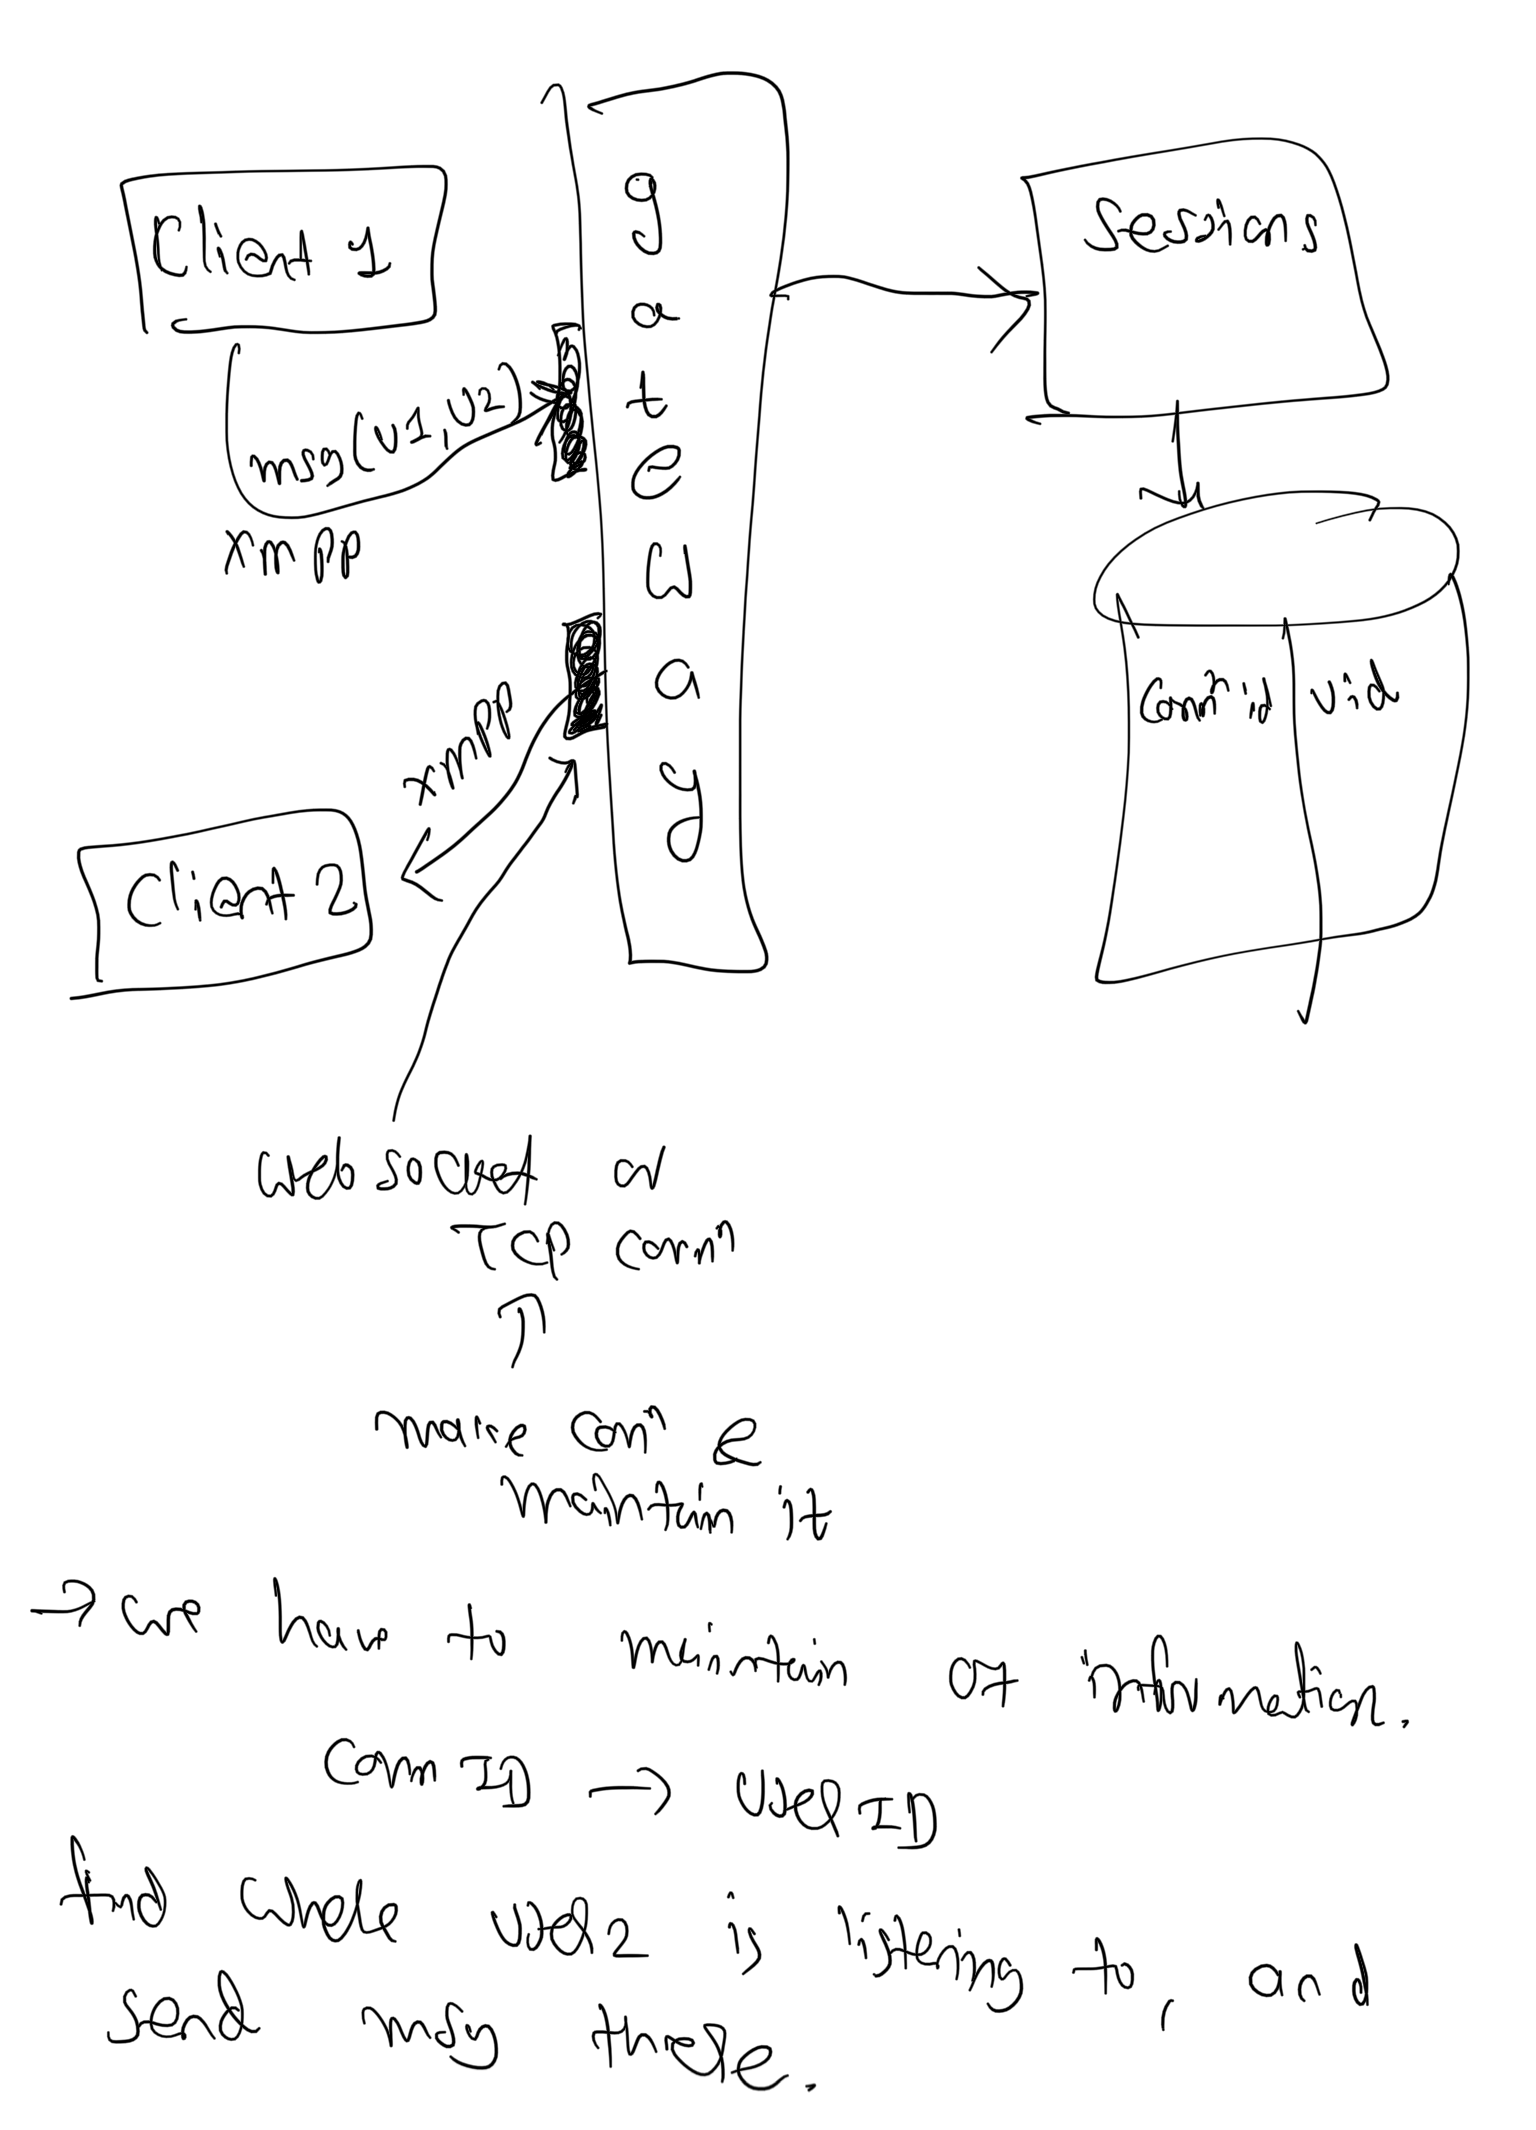 Client 1
gateway
Sessions
msg(U1,U2)
xmpp
Connⁿ id
Uid
xmpp
Client 2
web socket or
TCP connⁿ
make conⁿ &
maintain it
→ we have to maintain of information.
Conn ID → User ID
find where user2 is listening to, and
send msg there.